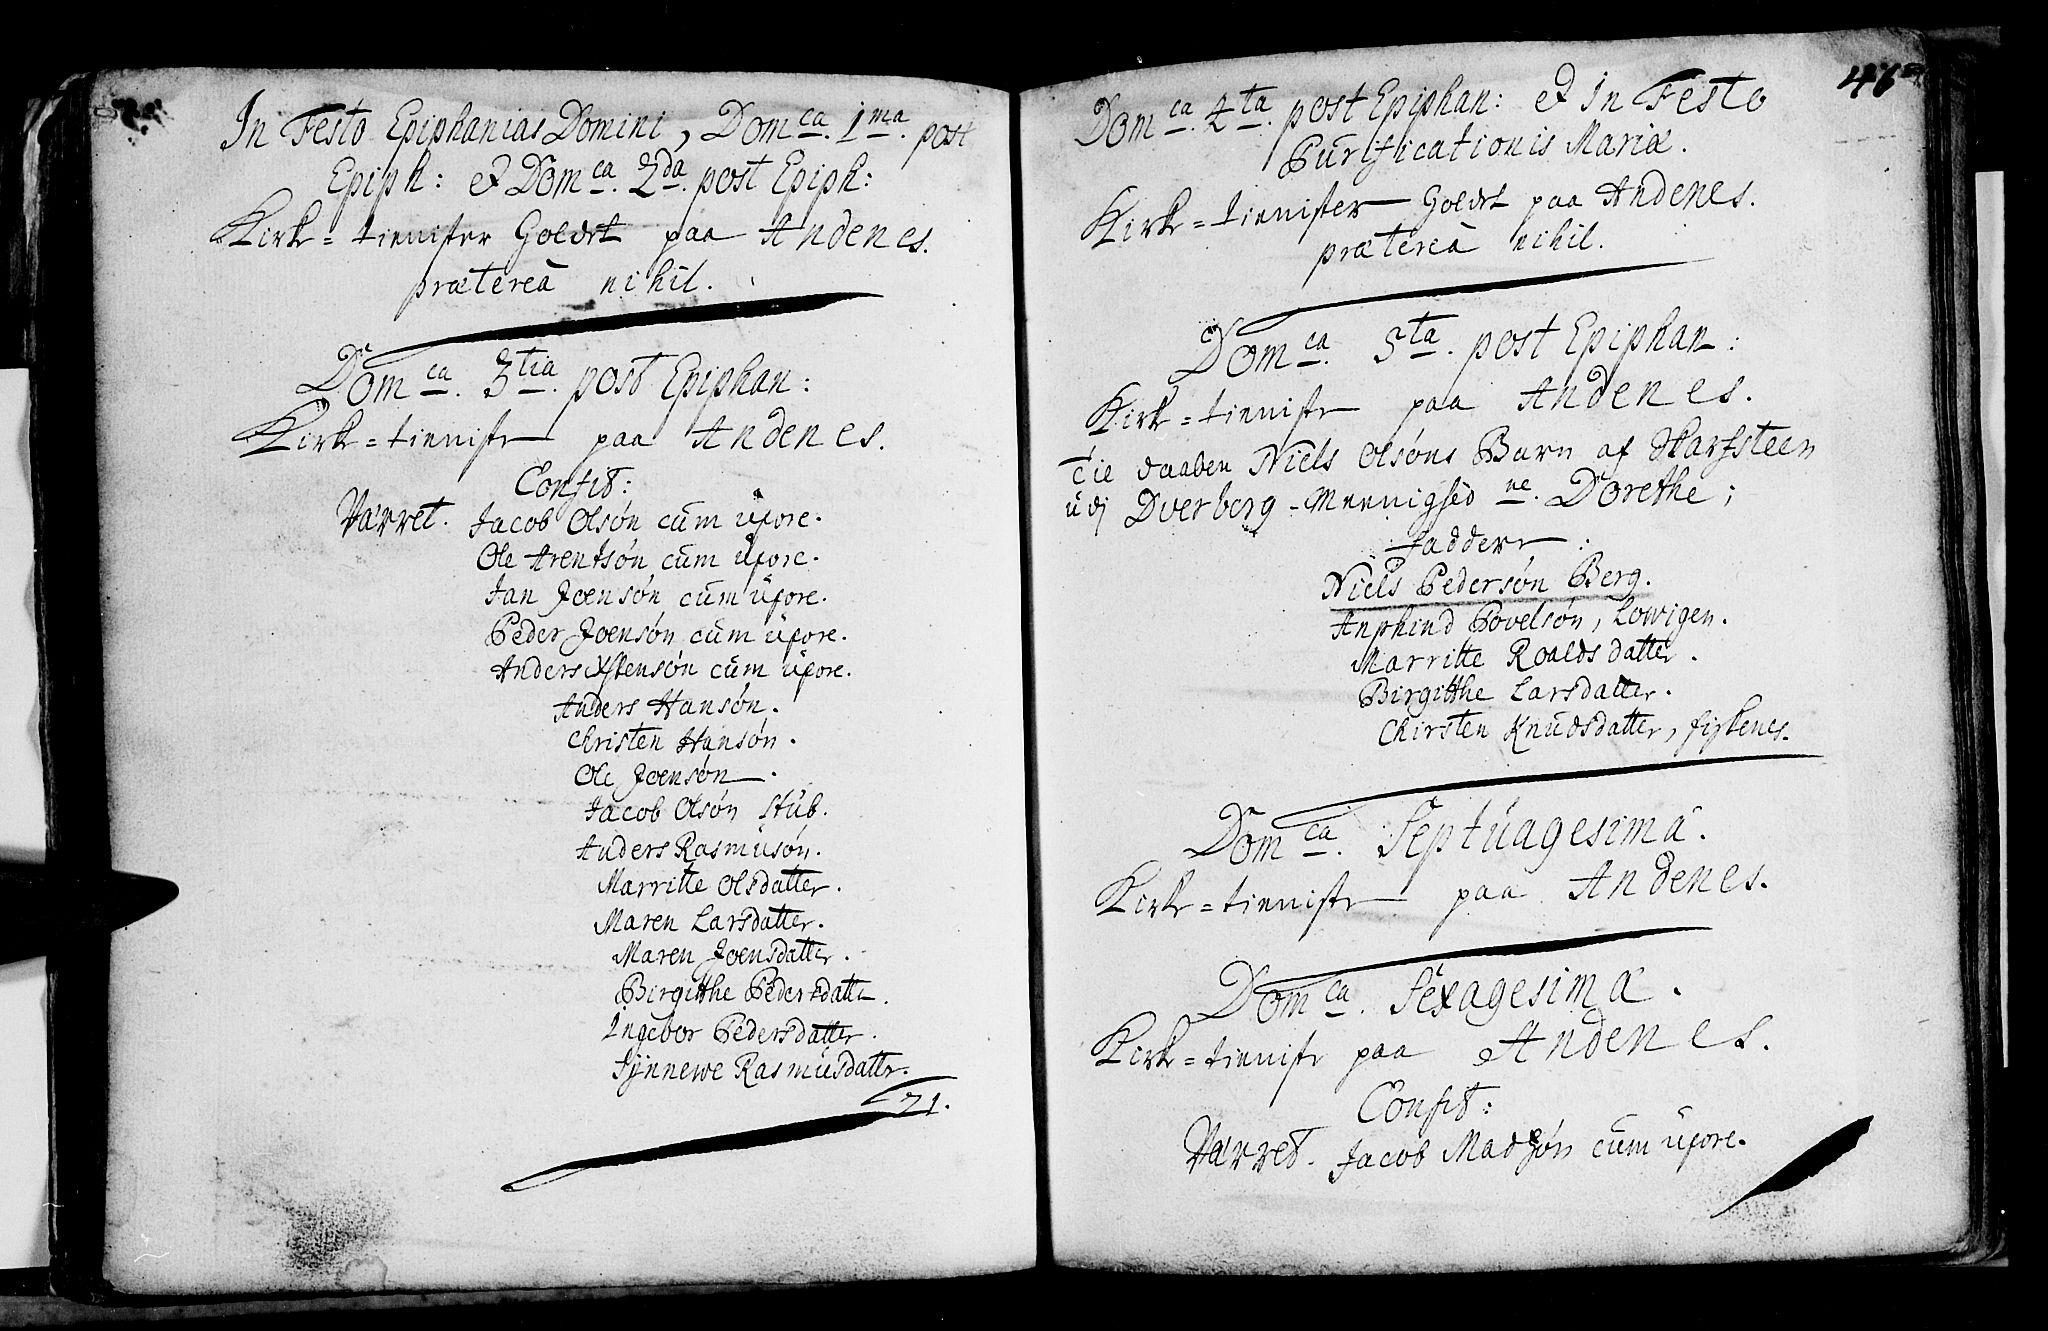 In Festo Epiphanias Domini, Dom ca. 1 ma. post
Epiph: et Dom ca. 2 da. post Epiph:
Kirke=tienister Holdet paa Andenes.
prætereà nihil.
Dom ca. 3 tia. post Epiphan:
Kirke=tieniste paa Andenes.
Confit:
Værret. Jacob Olsøn cum uxore.
Ole Arentsøn cum uxore.
Jan Joensøn cum uxore.
Peder Joensøn cum uxore.
Anders Xstensøn cum uxore.
Anders Hansøn.
Christen Hansøn.
Ole Joensøn.
Jacob Olsøn Stub.
Anders Rasmusøn.
Marritte Olsdatter.
Maren Larsdatter.
Maren Joensdatter.
Birgitthe Pedersdatter.
Ingebor Pedersdatter.
Synnewe Rasmusdatter.
21.
46
Dom ca. 4 ta. post Epiphan: et In Festo
Purificationis Mariæ.
Kirke=tienister Holdet paa Andenes.
prætereà nihil.
Dom ca. 5 ta. post Epiphan:
Kirke=tieniste paa Andenes.
Til daaben Niels Olsøns Barn af Skarfsteen
udj Dverberg-Meenighed ne. Dorethe;
Faddere:
Niels Pedersøn Berg.
Anphind Povelsøn, Lowigen.
Marritte Roaldsdatter.
Birgitthe Larsdatter.
Chirsten Knudsdatter, Fiskenes.
Dom ca. Septuagesima.
Kirke=tieniste paa Andenes.
Dom ca. Sexagesima.
Kirke=tieniste paa Andenes.
Confit:
Værret. Jacob Madsøn cum uxore.